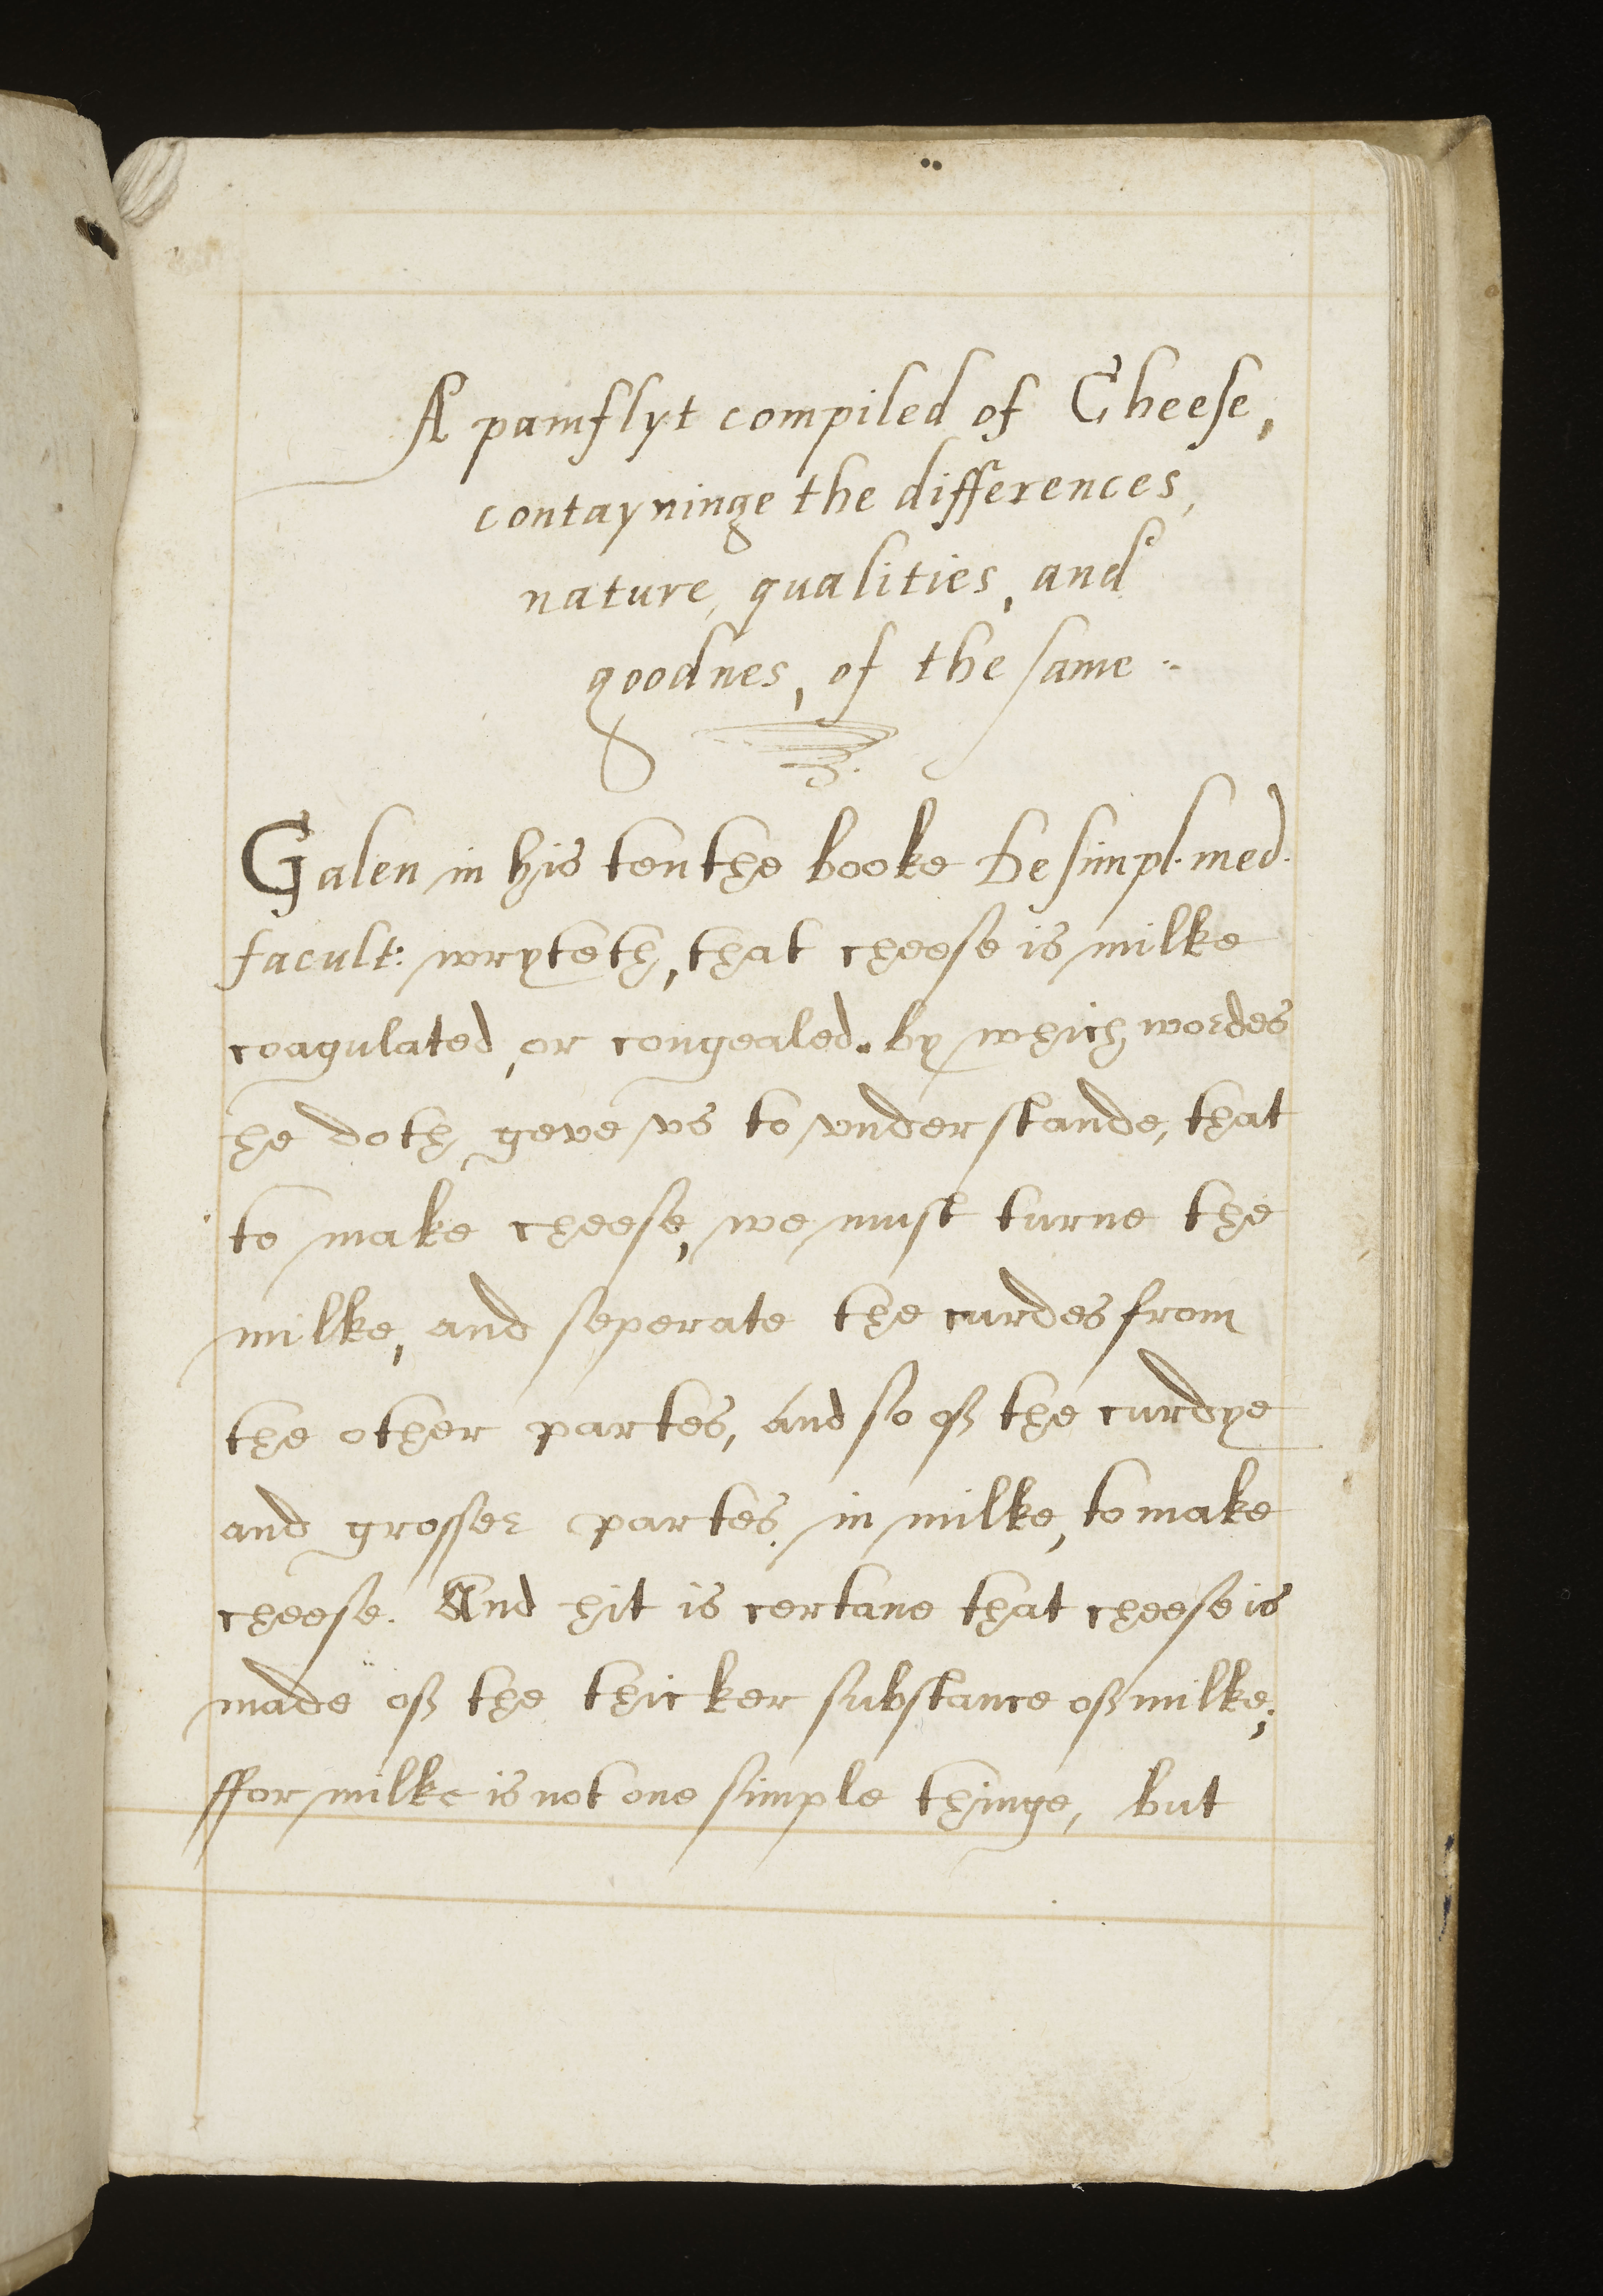 A pamflyt compiled of Cheese,
contayninge the differences,
nature, qualities, and
goodnes, of the same
Galen in his tenthe booke De simpl. med.
facult: wryteth, that cheese is milke
coagulated, or congealed. by which wordes
he doth geve vs to vnderstande, that
to make cheese, we must turne the
milke, and seperate the curdes from
the other partes, And so off the curdye
and grosser partes. in milke, to make
cheese. And hit is certane that cheese is
made off the thicker substance off milke;
ffor milke is not one simple thinge, but